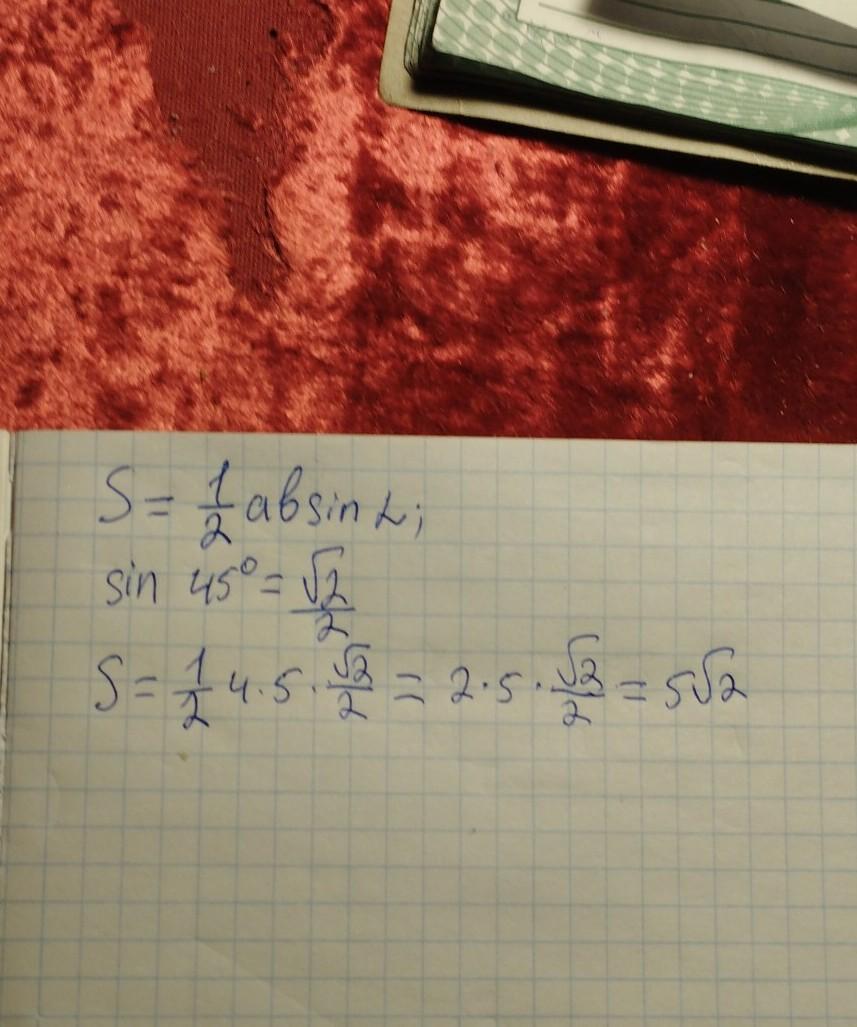 S = 1/2 ab sin α;
sin 45° = √2/2
S = 1/2 4·5·√2/2 = 2·5·√2/2 = 5√2